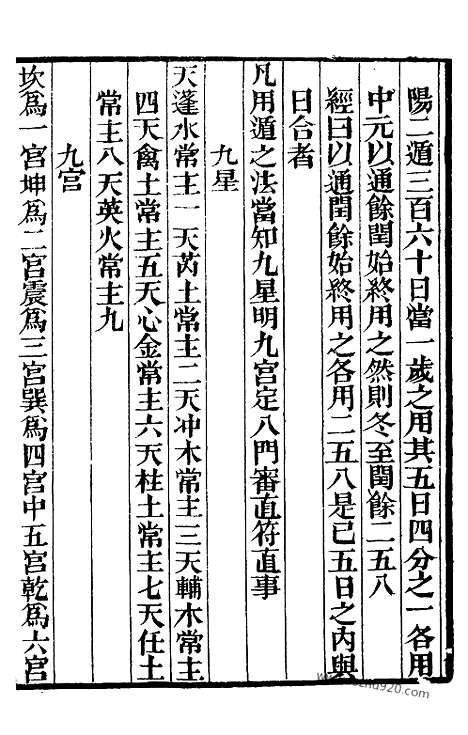 陽二遁三百六十日當一歲之用其五日四分之一各用
中元以通餘閏始終用之然則冬至閏餘二五八
經曰以通閏餘始終用之各用二五八是已五日之內與
日合者
凡用遁之法當知九星明九宮定八門審直符直事
九星
天蓬水常主一天芮土常主二天冲木常主三天輔木常主
四天禽土常主五天心金常主六天柱土常主七天任土
常主八天英火常主九
九宮
坎爲一宮坤爲二宮震爲三宮巽爲四宮中五宮乾爲六宮